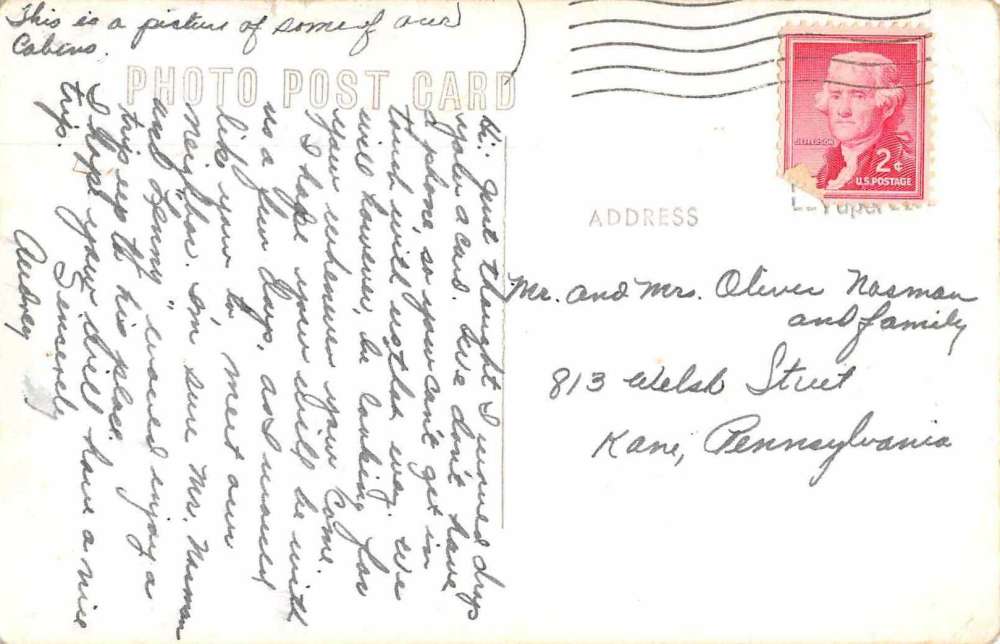 This is a picture of some of our
Cabins.
PHOTO POST CARD
Hi: Just thought I would drop
you a card. We don't have
a phone, so you can't get in
touch with us that way. We
will however, be looking for
you whenever you come.
I hope you will be with
us a few days, as I would
like you to meet our
Neighbor. I'm sure Mr. Nasman
and "Lenny" would enjoy a
trip up to his place.
I hope you will have a nice
trip.
Sincerely
Audrey
JEFFERSON
2¢
U.S. POSTAGE
ADDRESS
Mr. and Mrs. Oliver Nasman
and family
813 Welsh Street
Kane, Pennsylvania